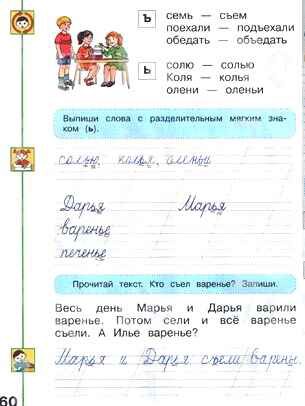 Ъ
семь — съем
поехали — подъехали
обедать — объедать
Ь
солю — солью
Коля — колья
олени — оленьи
Выпиши слова с разделительным мягким зна-
ком (ь).
солью, колья, оленьи
Дарья Марья
варенье
печенье
Прочитай текст. Кто съел варенье? Запиши.
Весь день Марья и Дарья варили
варенье. Потом сели и всё варенье
съели. А Илье варенье?
Марья и Дарья съели варенье.
60